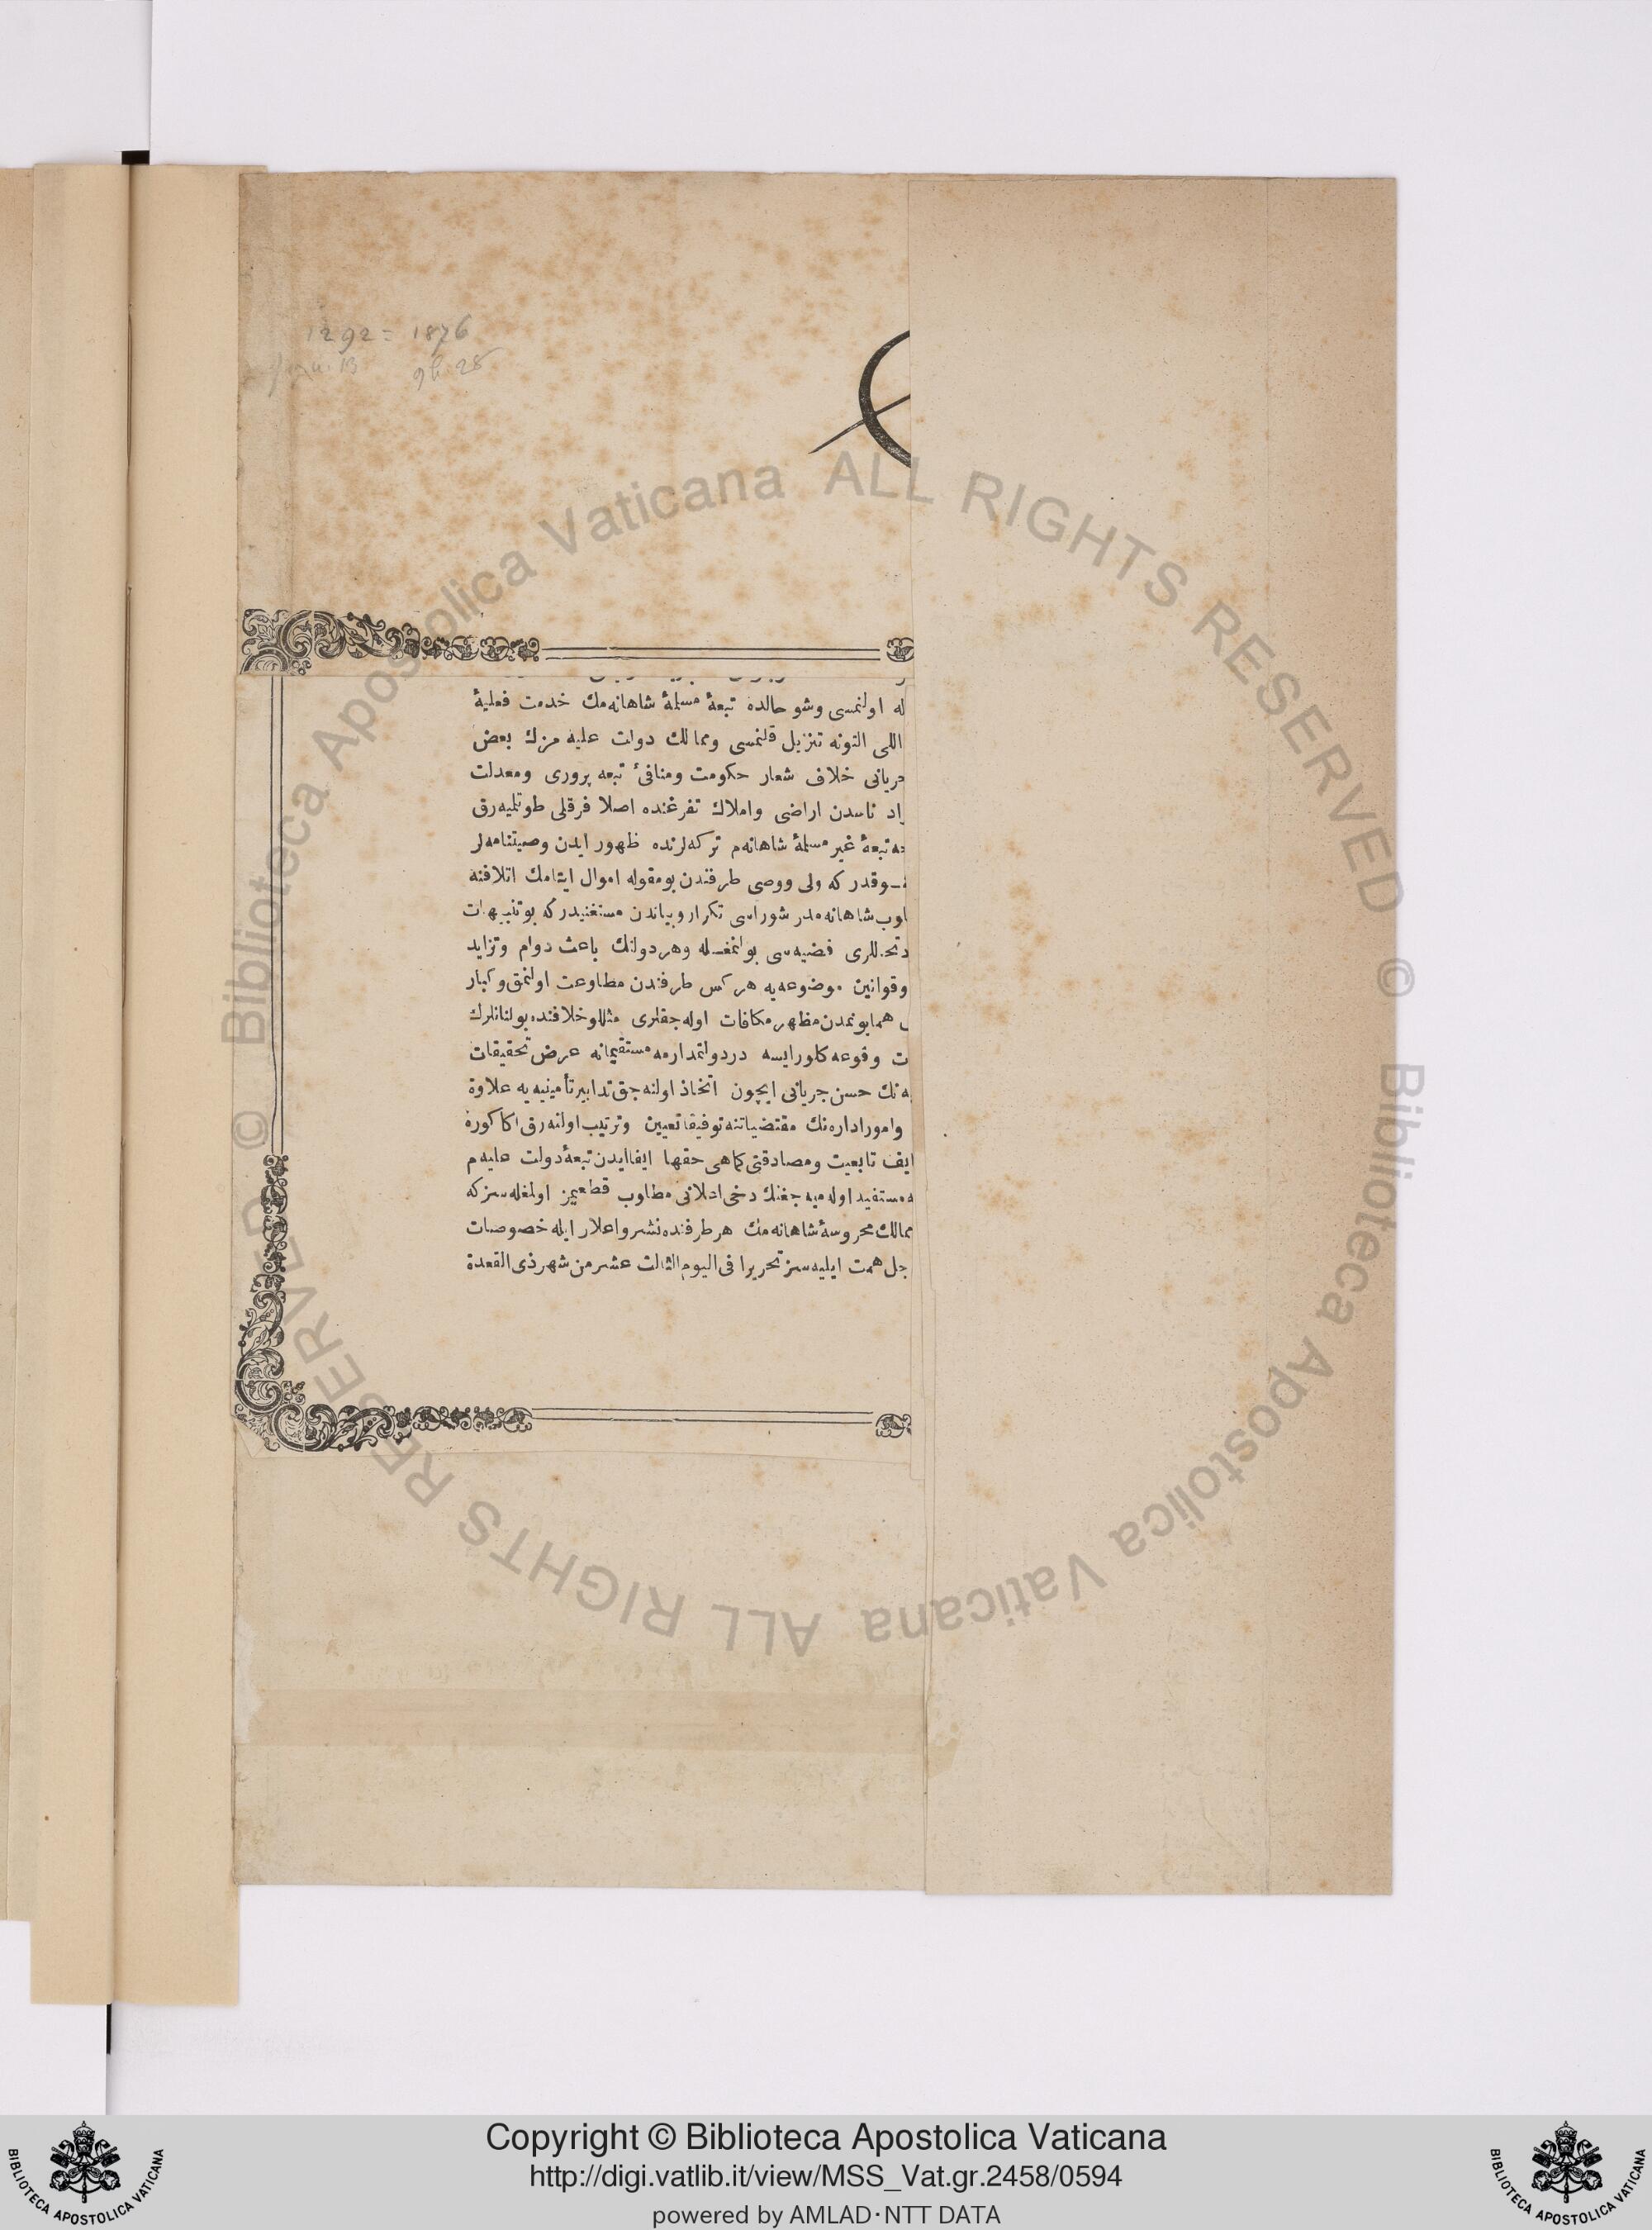 1292 = 1876
له اولنمسی وشو حالده تبعهٔ مسلمهٔ شاهانه‌مك خدمت فعلیهٔ
اللی التونه تنزیل قلنمسی وممالك دولت علیه مزك بعض
جریانی خلاف شعار حکومت ومنافیٔ تبعه پروری ومعدلت
راد ناسدن اراضی واملاك تفرغنده اصلا فرقلی طوتلمیه‌رق
تبعهٔ غیر مسلمهٔ شاهانه‌م ترکه‌لرنده ظهور ایدن وصیتنامه‌لر
وقدر که ولی ووصی طرفندن بومقوله اموال ایتامك اتلافنه
لوب شاهانه‌مدر شوراسی تکرار وبیاندن مستغنیدرکه بوتنبیهات
قضیه‌سی بولنمغـله وهردولتك باعث دوام وتزاید
وقوانین موضوعه‌یه هرکس طرفندن مطاوعت اولنمق وکبار
همایونمدن مظهر مکافات اوله‌جقلری مثللو خلافنده بولنانلرك
ت وقوعه کلورایسه دردولتمدارمه مستقیمانه عرض تحقیقات
ه نك حسن جریانی ایچون اتخاذ اولنه‌جق تدابیر تأمینیه‌یه علاوة
وامور اداره‌نك مقتضیاتنه توفیقا تعیین وترتیب اولنه‌رق اکا کوره
ایف تابعیت ومصادقتی کماهی حقها ایفا ایدن تبعهٔ دولت علیه‌م
ه مستفید اوله‌میه‌جغنك دخی اعلانی مطلوب قطعیمز اولمغله سزکه
ممالك محروسهٔ شاهانه‌مك هر طرفنده نشر واعلان ایله خصوصات
جل همت ایلیه‌سز تحریرا فی الیوم الثالث عشر من شهر ذی القعدة
© Biblioteca Apostolica Vaticana ALL RIGHTS RESERVED
© Biblioteca Apostolica Vaticana ALL RIGHTS RESERVED
Copyright © Biblioteca Apostolica Vaticana
http://digi.vatlib.it/view/MSS_Vat.gr.2458/0594
powered by AMLAD·NTT DATA
BIBLIOTECA APOSTOLICA VATICANA
BIBLIOTECA APOSTOLICA VATICANA